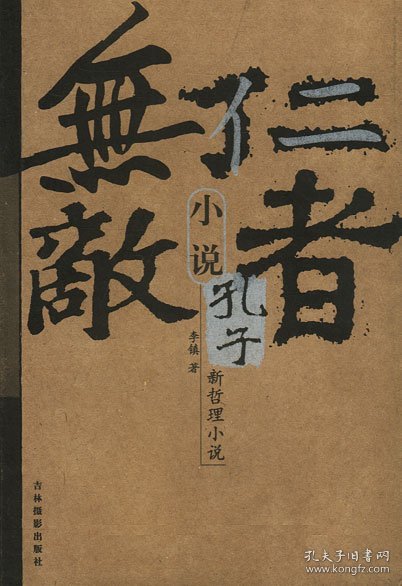 仁者
無敵
小说
孔子
李镇 著
新哲理小说
吉林摄影出版社
孔夫子旧书网
www.kongfz.com